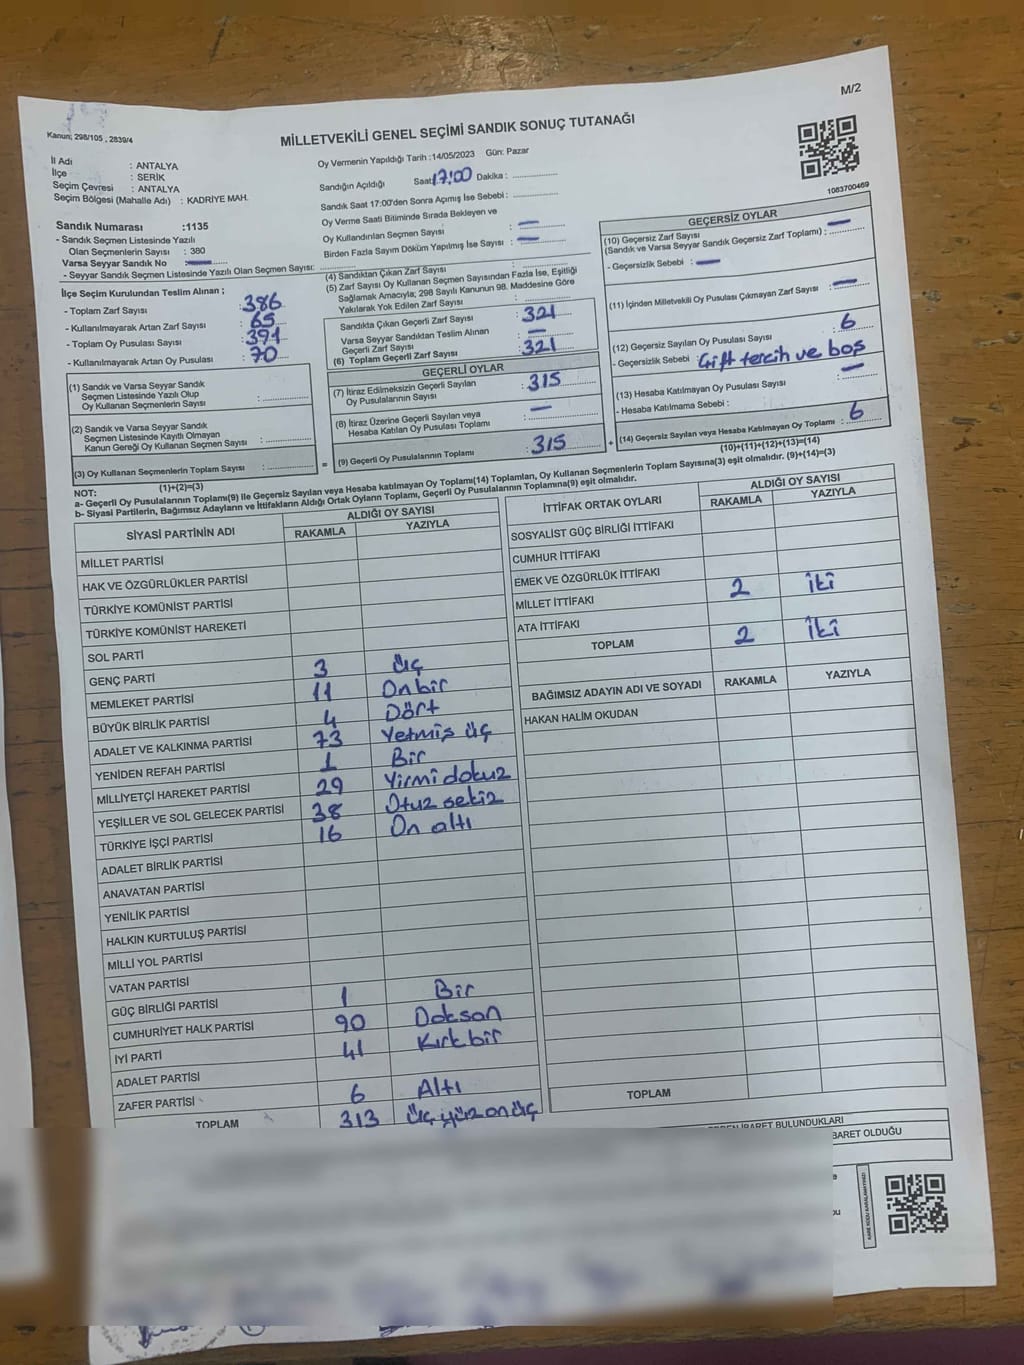 M/2
Kanun; 298/105 , 2839/4
MİLLETVEKİLİ GENEL SEÇİMİ SANDIK SONUÇ TUTANAĞI
İl Adı : ANTALYA
İlçe : SERİK
Seçim Çevresi : ANTALYA
Seçim Bölgesi (Mahalle Adı) : KADRİYE MAH.
Oy Vermenin Yapıldığı Tarih :14/05/2023 Gün: Pazar
Sandığın Açıldığı Saat: 17:00 Dakika : ..............
Sandık Saat 17:00'den Sonra Açımış İse Sebebi : ..............
Oy Verme Saati Bitiminde Sırada Bekleyen ve
Oy Kullandırılan Seçmen Sayısı : —
Birden Fazla Sayım Döküm Yapılmış İse Sayısı : —
1063700469
Sandık Numarası :1135
- Sandık Seçmen Listesinde Yazılı
Olan Seçmenlerin Sayısı : 380
Varsa Seyyar Sandık No : —
- Seyyar Sandık Seçmen Listesinde Yazılı Olan Seçmen Sayısı: ..............
İlçe Seçim Kurulundan Teslim Alınan ;
- Toplam Zarf Sayısı : 386
- Kullanılmayarak Artan Zarf Sayısı : 65
- Toplam Oy Pusulası Sayısı : 391
- Kullanılmayarak Artan Oy Pusulası : 70
(1) Sandık ve Varsa Seyyar Sandık
Seçmen Listesinde Yazılı Olup
Oy Kullanan Seçmenlerin Sayısı : ..............
(2) Sandık ve Varsa Seyyar Sandık
Seçmen Listesinde Kayıtlı Olmayan
Kanun Gereği Oy Kullanan Seçmen Sayısı : ..............
(3) Oy Kullanan Seçmenlerin Toplam Sayısı : ..............
(1)+(2)=(3)
(4) Sandıktan Çıkan Zarf Sayısı : ..............
(5) Zarf Sayısı Oy Kullanan Seçmen Sayısından Fazla İse, Eşitliği
Sağlamak Amacıyla; 298 Sayılı Kanunun 98. Maddesine Göre
Yakılarak Yok Edilen Zarf Sayısı : ..............
Sandıkta Çıkan Geçerli Zarf Sayısı : 321
Varsa Seyyar Sandıktan Teslim Alınan
Geçerli Zarf Sayısı : —
(6) Toplam Geçerli Zarf Sayısı : 321
GEÇERLİ OYLAR
(7) İtiraz Edilmeksizin Geçerli Sayılan
Oy Pusulalarının Sayısı : 315
(8) İtiraz Üzerine Geçerli Sayılan veya
Hesaba Katılan Oy Pusulası Toplamı : —
= (9) Geçerli Oy Pusulalarının Toplamı : 315 +
GEÇERSİZ OYLAR
(10) Geçersiz Zarf Sayısı
(Sandık ve Varsa Seyyar Sandık Geçersiz Zarf Toplamı) : —
- Geçersizlik Sebebi : —
(11) İçinden Milletvekili Oy Pusulası Çıkmayan Zarf Sayısı : —
(12) Geçersiz Sayılan Oy Pusulası Sayısı : 6
- Geçersizlik Sebebi : Çift tercih ve boş
(13) Hesaba Katılmayan Oy Pusulası Sayısı : —
- Hesaba Katılmama Sebebi :
(14) Geçersiz Sayılan veya Hesaba Katılmayan Oy Toplamı : 6
(10)+(11)+(12)+(13)=(14)
NOT:
a- Geçerli Oy Pusulalarının Toplamı(9) İle Geçersiz Sayılan veya Hesaba katılmayan Oy Toplamı(14) Toplamları, Oy Kullanan Seçmenlerin Toplam Sayısına(3) eşit olmalıdır. (9)+(14)=(3)
b- Siyasi Partilerin, Bağımsız Adayların ve İttifakların Aldığı Ortak Oyların Toplamı, Geçerli Oy Pusulalarının Toplamına(9) eşit olmalıdır.
SİYASİ PARTİNİN ADI ALDIĞI OY SAYISI
RAKAMLA YAZIYLA
MİLLET PARTİSİ
HAK VE ÖZGÜRLÜKLER PARTİSİ
TÜRKİYE KOMÜNİST PARTİSİ
TÜRKİYE KOMÜNİST HAREKETİ
SOL PARTİ
GENÇ PARTİ 3 Üç
MEMLEKET PARTİSİ 11 Onbir
BÜYÜK BİRLİK PARTİSİ 4 Dört
ADALET VE KALKINMA PARTİSİ 73 Yetmiş üç
YENİDEN REFAH PARTİSİ 1 Bir
MİLLİYETÇİ HAREKET PARTİSİ 29 Yirmi dokuz
YEŞİLLER VE SOL GELECEK PARTİSİ 38 Otuz sekiz
TÜRKİYE İŞÇİ PARTİSİ 16 On altı
ADALET BİRLİK PARTİSİ
ANAVATAN PARTİSİ
YENİLİK PARTİSİ
HALKIN KURTULUŞ PARTİSİ
MİLLİ YOL PARTİSİ
VATAN PARTİSİ
GÜÇ BİRLİĞİ PARTİSİ 1 Bir
CUMHURİYET HALK PARTİSİ 90 Doksan
İYİ PARTİ 41 Kırkbir
ADALET PARTİSİ
ZAFER PARTİSİ 6 Altı
TOPLAM 313 Üç yüz on üç
İTTİFAK ORTAK OYLARI ALDIĞI OY SAYISI
RAKAMLA YAZIYLA
SOSYALİST GÜÇ BİRLİĞİ İTTİFAKI
CUMHUR İTTİFAKI
EMEK VE ÖZGÜRLÜK İTTİFAKI
MİLLET İTTİFAKI 2 İki
ATA İTTİFAKI
TOPLAM 2 İki
BAĞIMSIZ ADAYIN ADI VE SOYADI RAKAMLA YAZIYLA
HAKAN HALİM OKUDAN
TOPLAM
İBARET BULUNDUKLARI
BARET OLDUĞU